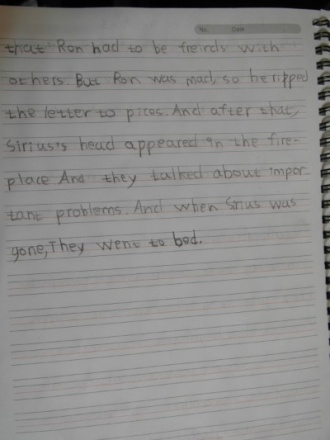 No. Date
that Ron had to be freirds with
others. But Ron was mad, so he ripped
the letter to pices. And after that,
Sirius's head appeared in the fire-
place And they talked about impor
tant problems. And when Srius was
gone, They went to bed.